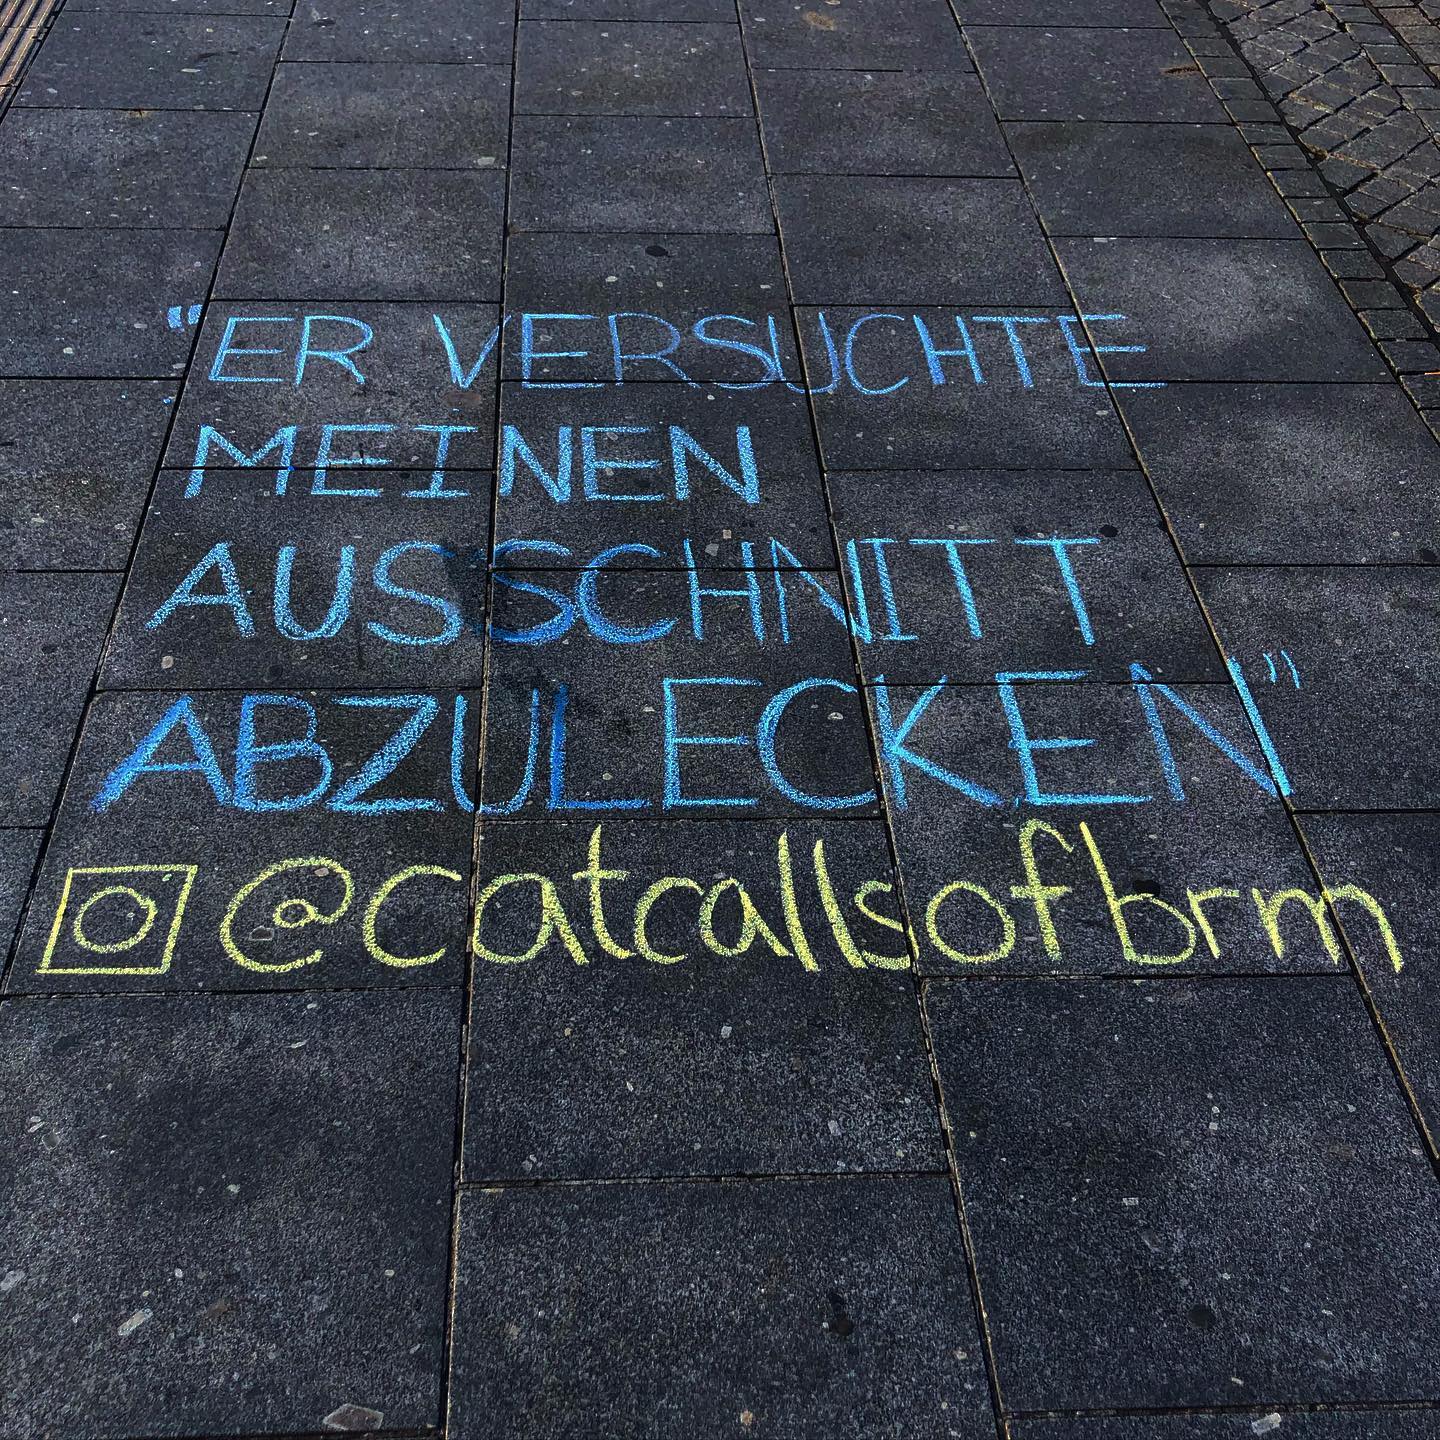 "ER VERSUCHTE
MEINEN
AUSSCHNITT
ABZULECKEN"
@catcallsofbrm